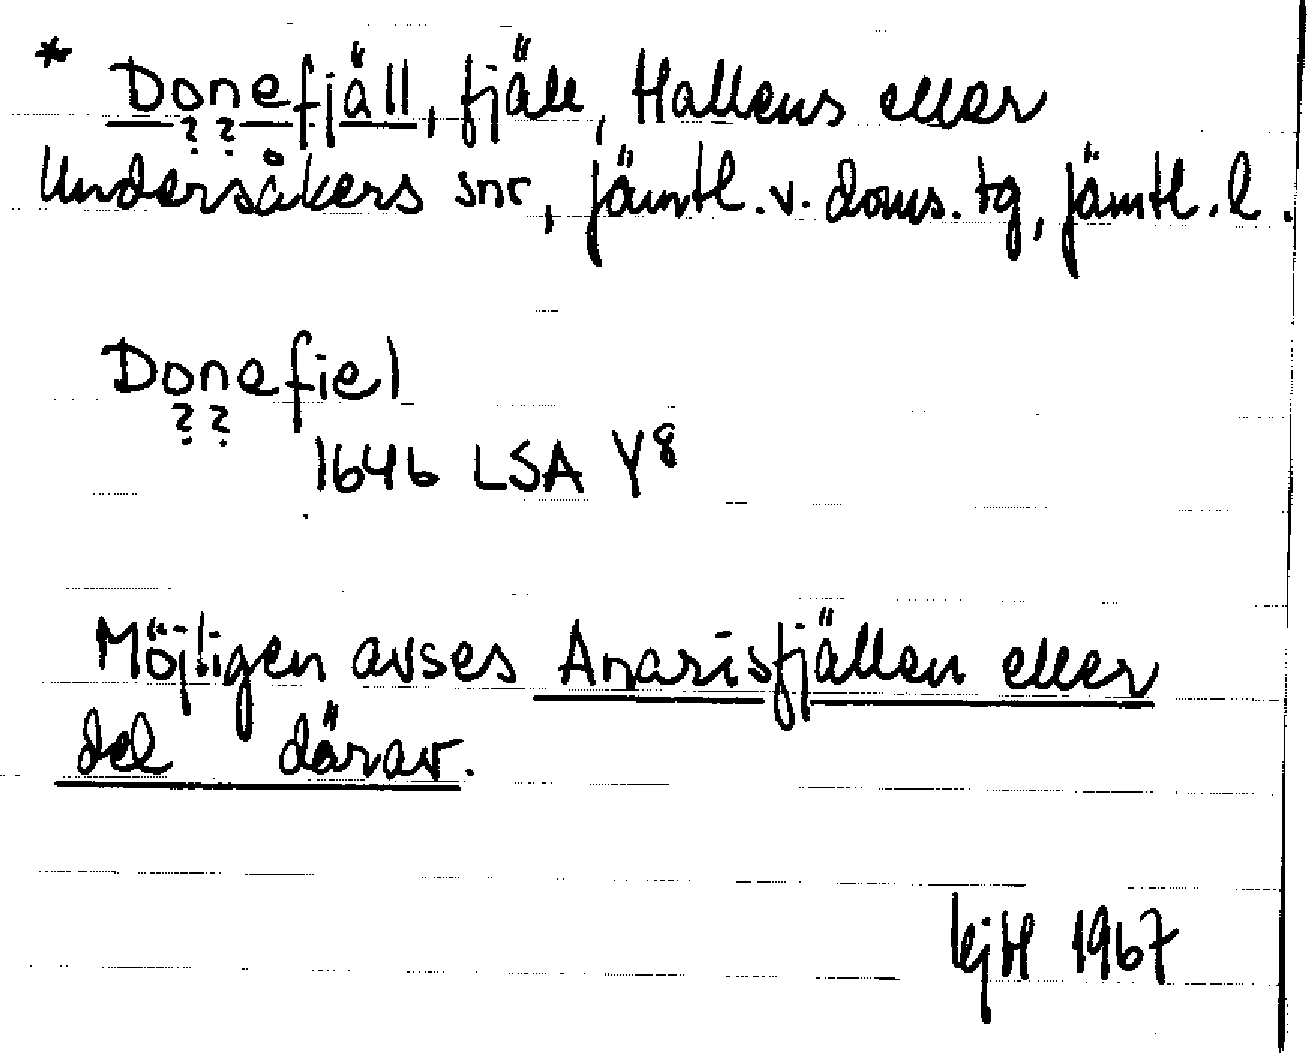 * Donefjäll, fjäll, Hallens eller
? ?
Undersåkers snr, jämtl. v. doms. tg, jämtl. l.
Donefiel
? ?
1646 LSA Y8
Möjligen avses Anarisfjällen eller
del därav.
KjH 1967